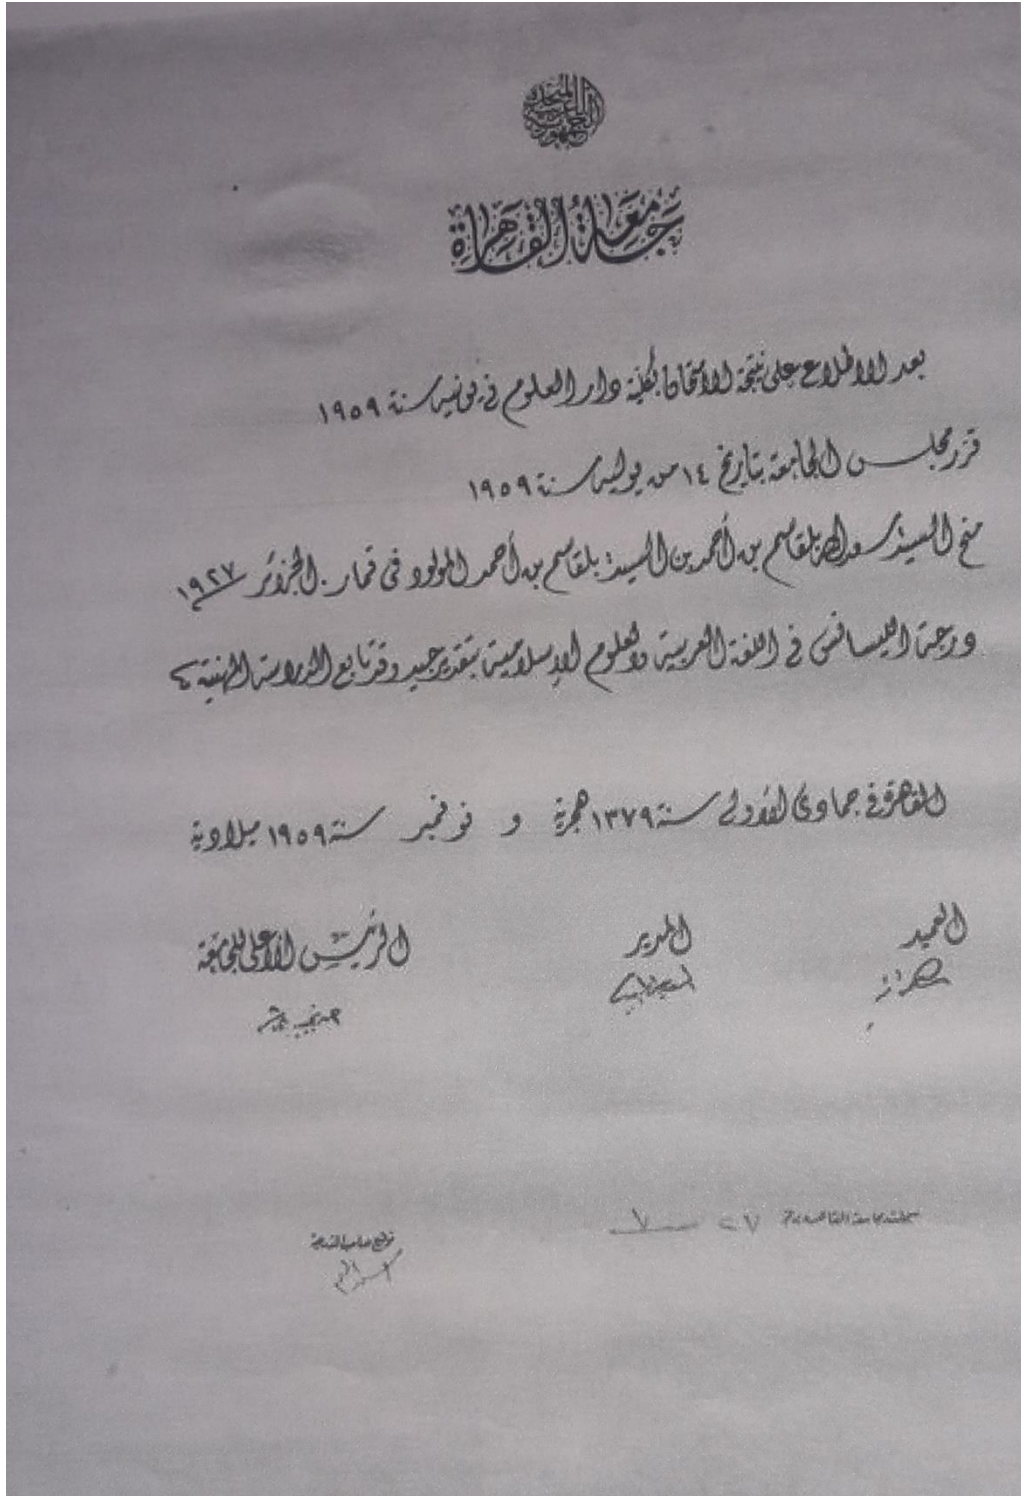 الجمهورية العربية المتحدة
جامعة القاهرة
بعد الاطلاع على نتيجة الامتحان بكلية دار العلوم فى يونيه سنة ١٩٥٩
قرر مجلس الجامعة بتاريخ ١٤ من يوليه سنة ١٩٥٩
منح السيد / سعد الله بلقاسم بن أحمد بن السيد / بلقاسم بن أحمد المولود فى قمار . الجزائر ١٩٢٧
درجة الليسانس فى اللغة العربية والعلوم الإسلامية بتقدير جيد وقد تابع الدراسة المهنية
القاهرة فى جمادى الأولى سنة ١٣٧٩ هجرية و نوفمبر سنة ١٩٥٩ ميلادية
العميد المدير الرئيس الأعلى للجامعة
سجلت بجامعة القاهرة
توقيع صاحب الشهادة